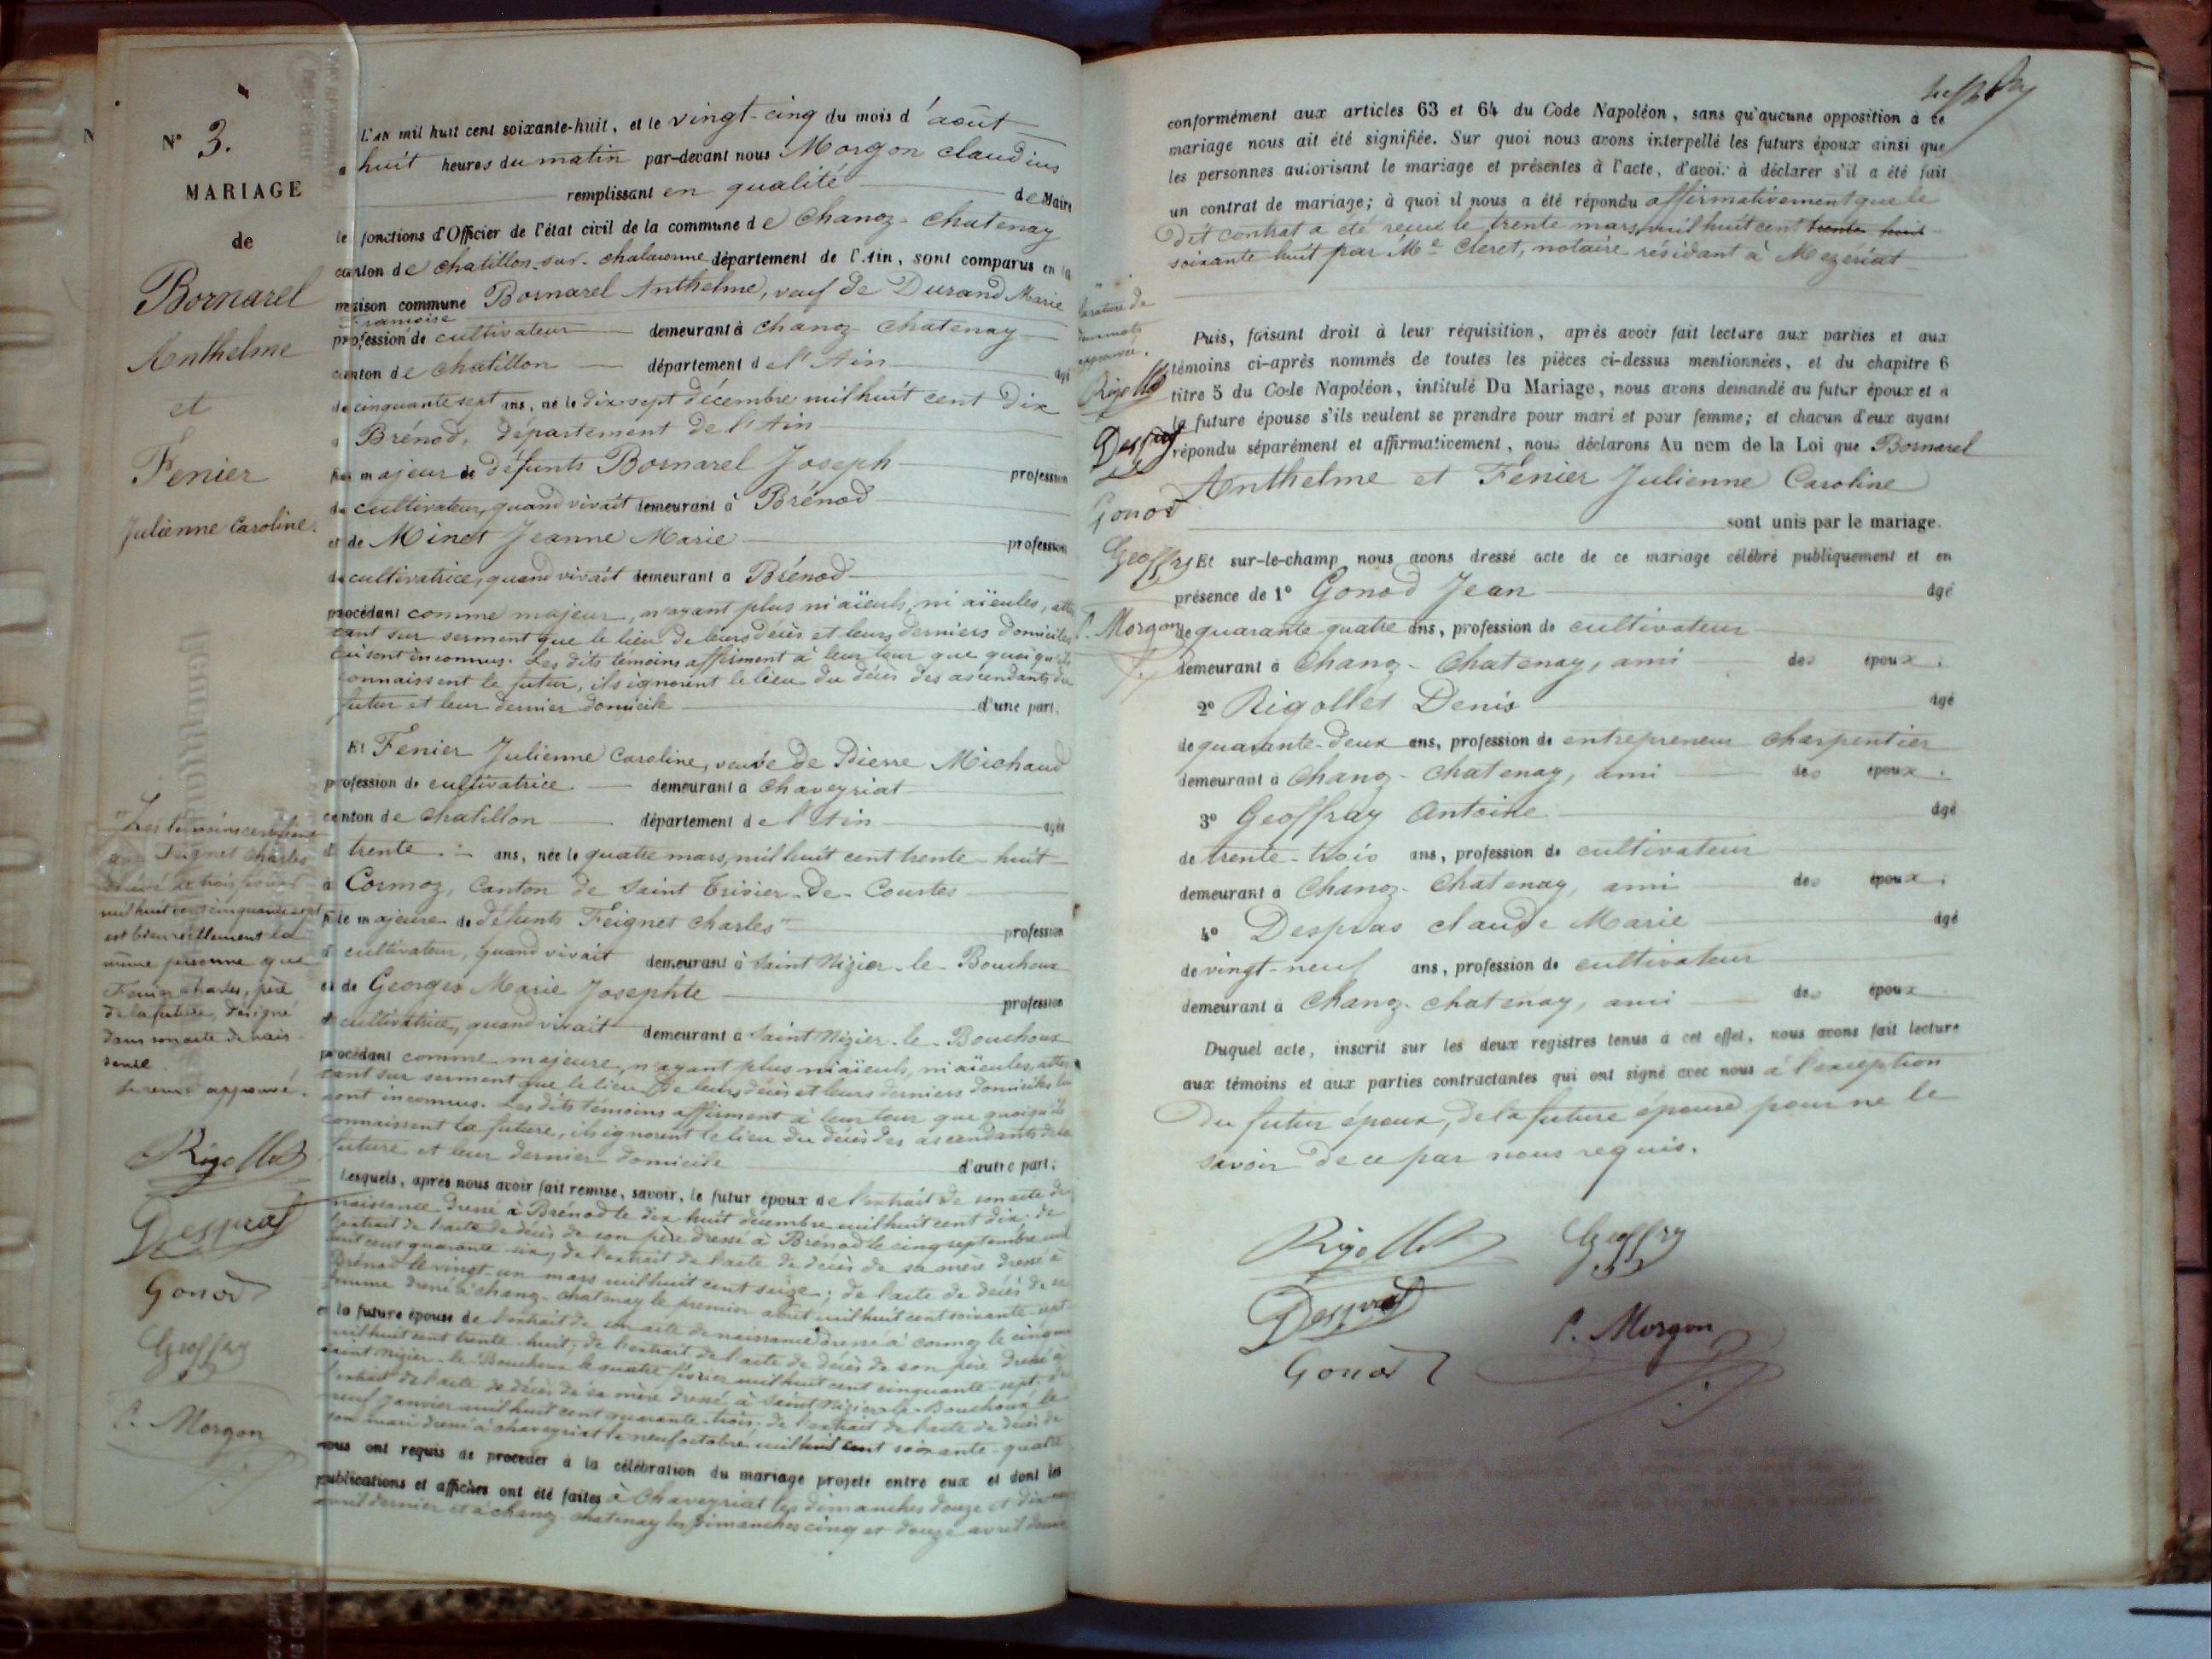 N° 3.
MARIAGE
de
Bornarel
Anthelme
et
Fenier
Julienne Caroline.
L'an mil huit cent soixante-huit, et le vingt-cinq du mois d'août
à huit heures du matin par-devant nous Morgon Claudius
remplissant en qualité de Maire
les fonctions d'Officier de l'état civil de la commune de Chanoz-Chatenay
canton de Chatillon-sur-Chalaronne département de l'Ain, sont comparus en la
maison commune Bornarel Anthelme, veuf de Durand Marie
Françoise
profession de cultivateur demeurant à Chanoz Chatenay
canton de Chatillon département de l'Ain âgé
de cinquante sept ans, né le dix sept décembre mil huit cent dix
à Brénod, département de l'Ain
fils majeur de défunts Bornarel Joseph profession
de cultivateur, quand vivait demeurant à Brénod
et de Minet Jeanne Marie profession
de cultivatrice, quand vivait demeurant à Brénod
procédant comme majeur, n'ayant plus ni aïeuls, ni aïeules, attes
tant sur serment que le lieu de leurs décès et leurs derniers domiciles
lui sont inconnus. Les dits témoins affirment à leur tour que quoiqu'ils
connaissent le futur, ils ignorent le lieu du décès des ascendants du
futur et leur dernier domicile d'une part.
Et Fenier Julienne Caroline, veuve de Pierre Michaud
profession de cultivatrice demeurant à Chaveyriat
canton de Chatillon département de l'Ain âgée
de trente ans, née le quatre mars, mil huit cent trente-huit
à Cormoz, Canton de Saint Trivier-de-Courtes
fille majeure de défunts Feignet Charles "
profession
de cultivateur, quand vivait demeurant à Saint Nizier-le-Bouchoux
et de Georges Marie Josephte
profession
de cultivatrice, quand vivait demeurant à Saint Nizier-le-Bouchoux
procédant comme majeure, n'ayant plus ni aïeuls, ni aïeules, attes
tant sur serment que le lieu de leurs décès et leurs derniers domiciles lui
sont inconnus. Les dits témoins affirment à leur tour que quoiqu'ils
connaissent la future, ils ignorent le lieu du décès des ascendants de la
future et leur dernier domicile d'autre part;
Lesquels, après nous avoir fait remise, savoir, le futur époux de l'extrait de son acte de
naissance dressé à Brénod le dix huit décembre mil huit cent dix; de
l'extrait de l'acte de décès de son père dressé à Brénod le cinq septembre mil
huit cent quarante six, de l'extrait de l'acte de décès de sa mère dressé à
Brénod le vingt-un mars mil huit cent seize; de l'acte de décès de sa
femme dressé à Chanoz-Chatenay le premier août mil huit cent soixante-sept
et la future épouse de l'extrait de son acte de naissance dressé à Cormoz le cinq mars
mil huit cent trente-huit; de l'extrait de l'acte de décès de son père dressé à
Saint Nizier-le-Bouchoux le quatre février mil huit cent cinquante-sept; de
l'extrait de l'acte de décès de sa mère dressé à Saint Nizier-le-Bouchoux le
neuf janvier mil huit cent quarante-trois; de l'extrait de l'acte de décès de
son mari dressé à Chaveyriat le neuf octobre mil huit cent soixante-quatre
nous ont requis de procéder à la célébration du mariage projeté entre eux et dont les
publications et affiches ont été faites à Chaveyriat les dimanches douze et dix-neuf
avril dernier et à Chanoz-Chatenay les dimanches cinq et douze avril dernier
" Les témoins certifient
que Feignet Charles
décédé le trois février
mil huit cent cinquante-sept
est bien réellement la
même personne que
Fenier Charles, père
de la future, désigné
dans son acte de nais-
sance.
Le renvoi approuvé.
Rigollet
Despras
Gonod
Geoffray
C. Morgon
conformément aux articles 63 et 64 du Code Napoléon, sans qu'aucune opposition à ce
mariage nous ait été signifiée. Sur quoi nous avons interpellé les futurs époux ainsi que
les personnes autorisant le mariage et présentes à l'acte, d'avoir à déclarer s'il a été fait
un contrat de mariage; à quoi il nous a été répondu affirmativement que le
dit contrat a été reçu le trente mars mil huit cent trente huit
soixante huit par Me Cleret, notaire résidant à Mezériat
rature de
deux mots
approuvée.
Rigollet
Despras
Gonod
Geoffray
C. Morgon
Puis, faisant droit à leur réquisition, après avoir fait lecture aux parties et aux
témoins ci-après nommés de toutes les pièces ci-dessus mentionnées, et du chapitre 6
titre 5 du Code Napoléon, intitulé Du Mariage, nous avons demandé au futur époux et à
la future épouse s'ils veulent se prendre pour mari et pour femme; et chacun d'eux ayant
répondu séparément et affirmativement, nous déclarons Au nom de la Loi que Bornarel
Anthelme et Fenier Julienne Caroline
sont unis par le mariage.
Et sur-le-champ nous avons dressé acte de ce mariage célébré publiquement et en
présence de 1° Gonod Jean âgé
de quarante quatre ans, profession de cultivateur
demeurant à Chanoz-Chatenay, ami des époux.
2° Rigollet Denis âgé
de quarante-deux ans, profession de entrepreneur charpentier
demeurant à Chanoz-Chatenay, ami des époux.
3° Geoffray Antoine âgé
de trente-trois ans, profession de cultivateur
demeurant à Chanoz-Chatenay, ami des époux.
4° Despras Claude Marie âgé
de vingt-neuf ans, profession de cultivateur
demeurant à Chanoz-Chatenay, ami des époux
Duquel acte, inscrit sur les deux registres tenus à cet effet, nous avons fait lecture
aux témoins et aux parties contractantes qui ont signé avec nous à l'exception
du futur époux, de la future épouse pour ne le
savoir de ce par nous requis.
Rigollet Geoffray
Despras
C. Morgon
Gonod